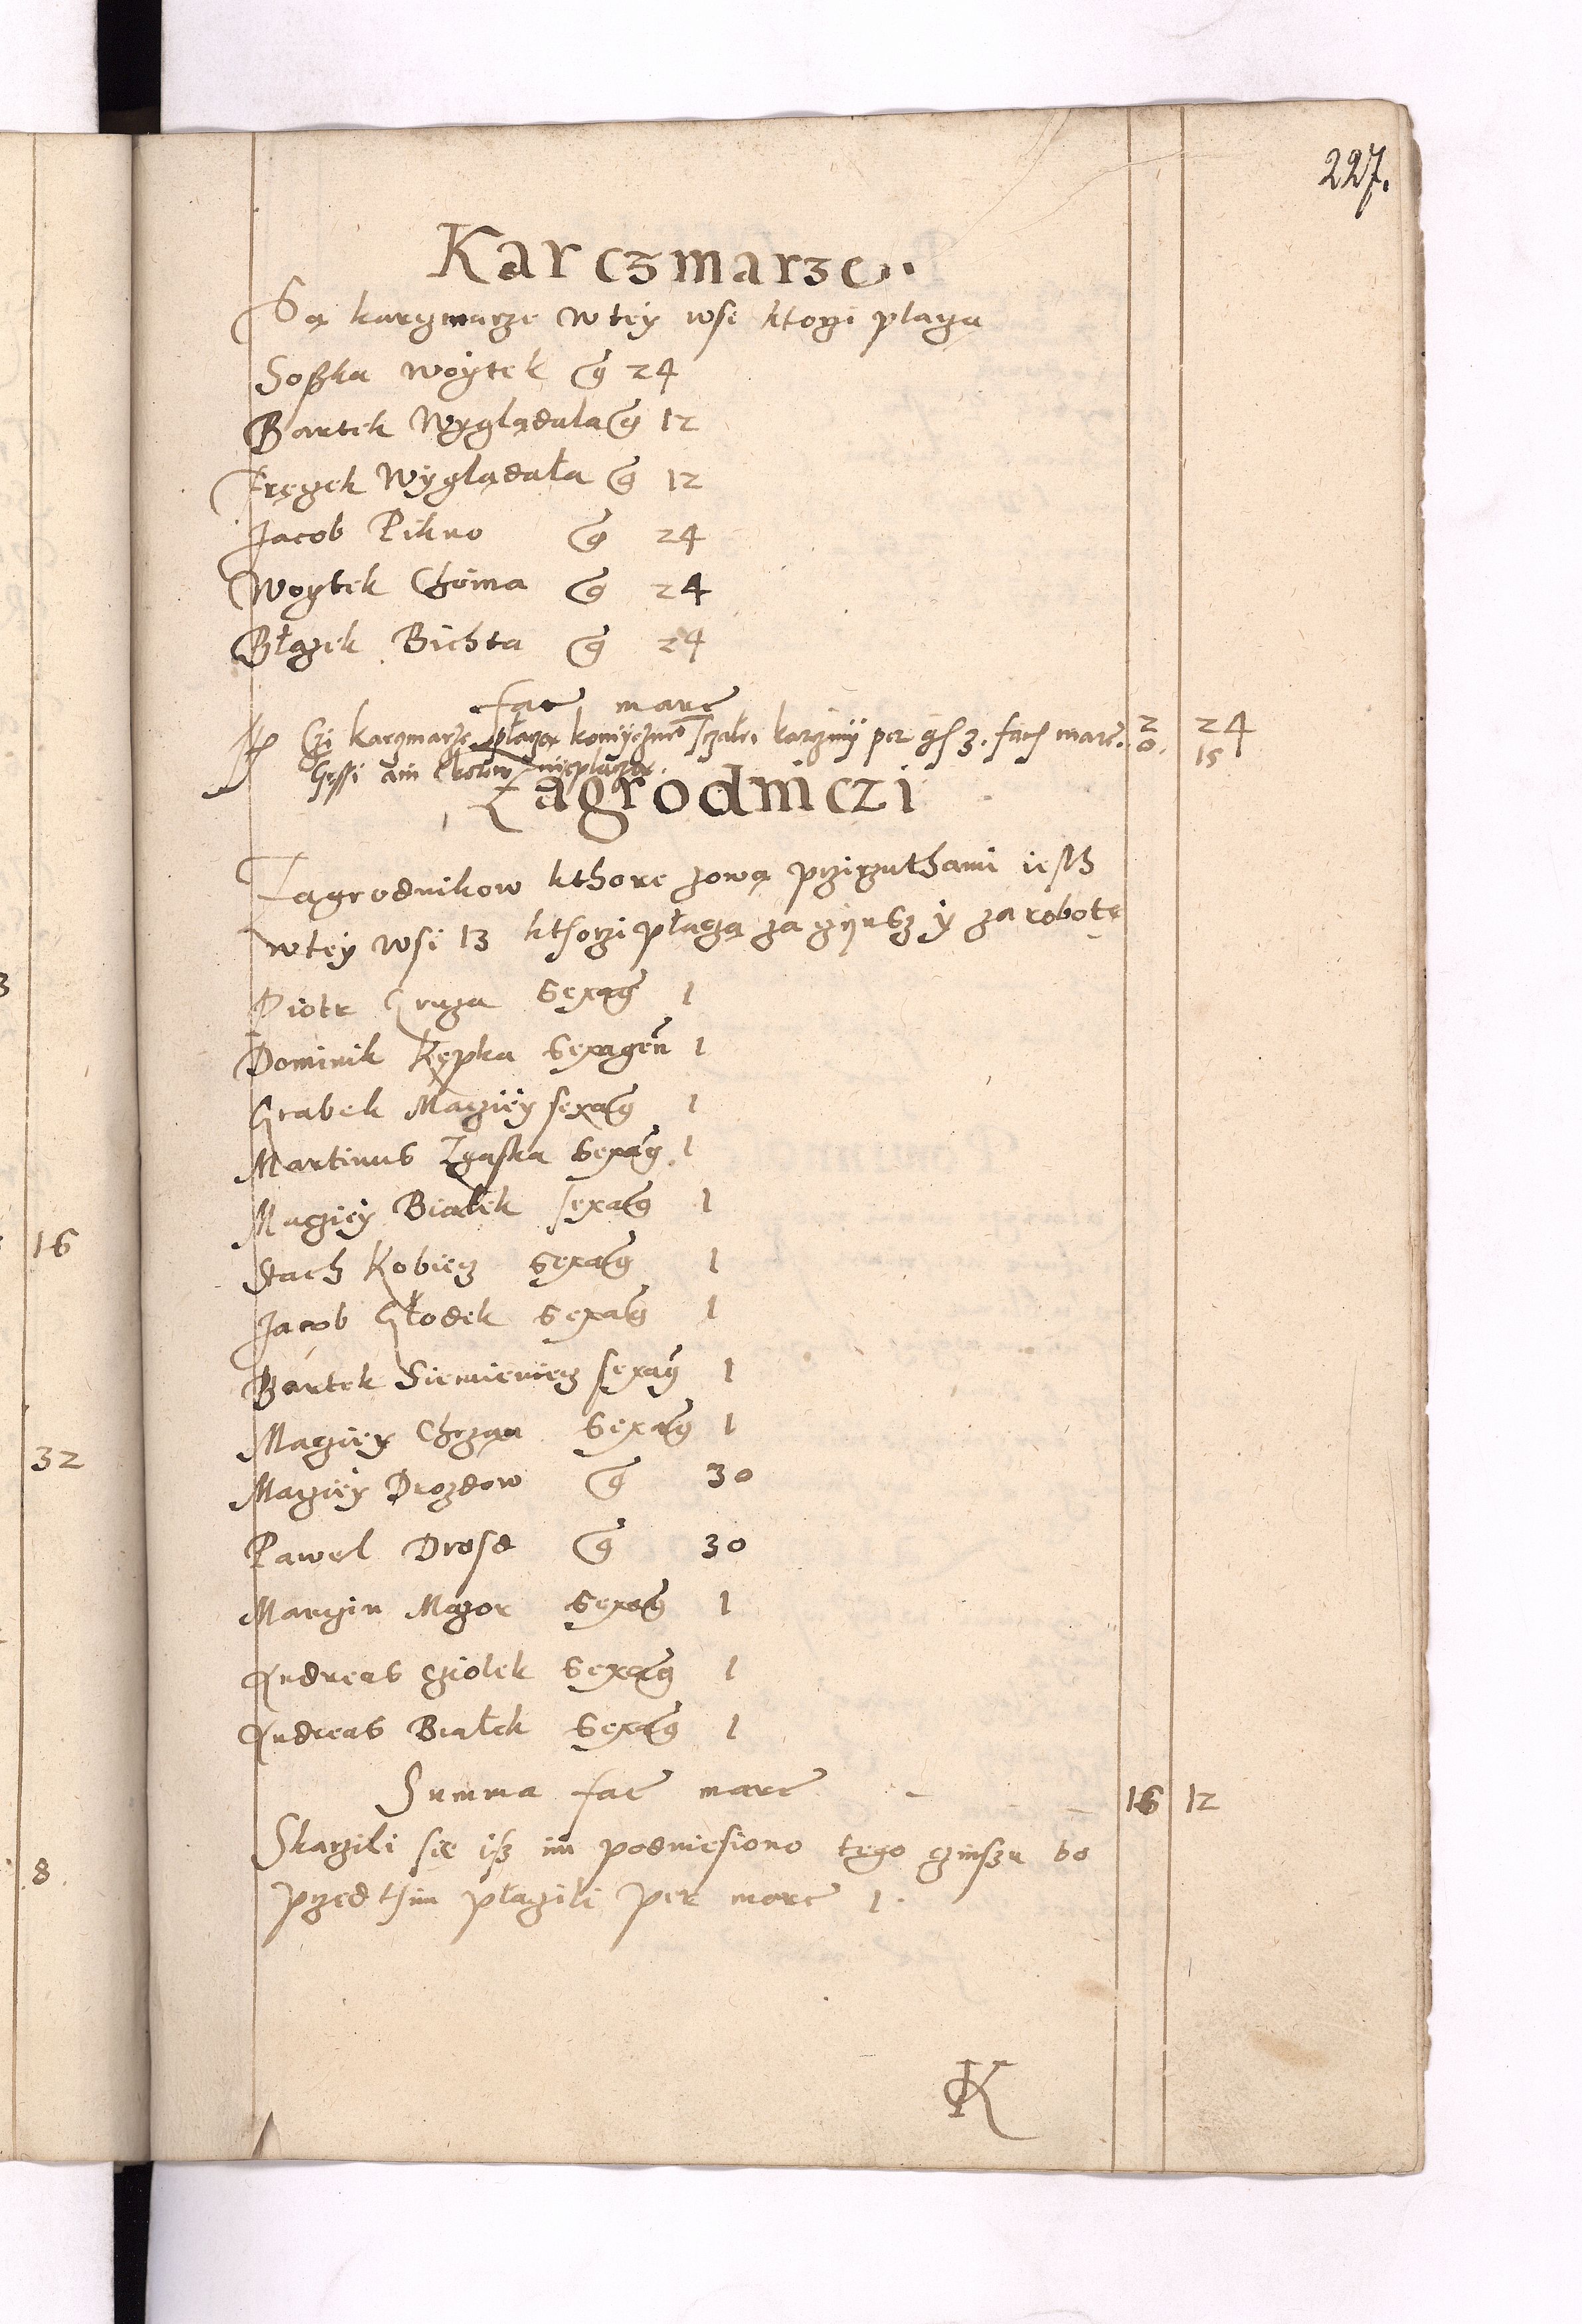 227.
Karczmarze
Są karczmarze w tey wsi ktorzi płaczą
Soßka Woytek g 24
Bartek Wyglądała g 12
Fręczek Wyglądała g 12
Jacob Pikno g 24
Woytek Choma g 24
Błażek Bichta g 24
fac marc 2 24
Czi karczmarze płaczą karczmy per gß 3. fach marc. 0. 15
Gęssi ani nie płaczą.
Zagrodniczi
Zagrodnikow kthore zową przirzuthami iesth
w tey wsi 13 kthorzi płaczą za czynsz y za robotę
Piotr Gruza Sexag 1
Dominik Kępka Sexagen 1
Grabek Maciey sexag 1
Martinus Zgaska Sexag. 1
Maciey Białek sexag 1
Stach Kobiecz Sexag 1
Jacob Głodek Sexag 1
Bartek Siemieniecz sexag 1
Maciey Chrząn Sexag 1
Maciey Drozdow g 30
Pawel Drosd g 30
Marczin Mazor Sexag 1
Andreas cziolek Sexag 1
Andreas Białek Sexag 1
Summa fac marc 16 12
Skarzili sie isz im podniesiono tego czinszu bo
przed thim płaczili per marc 1.
K
16
32
8